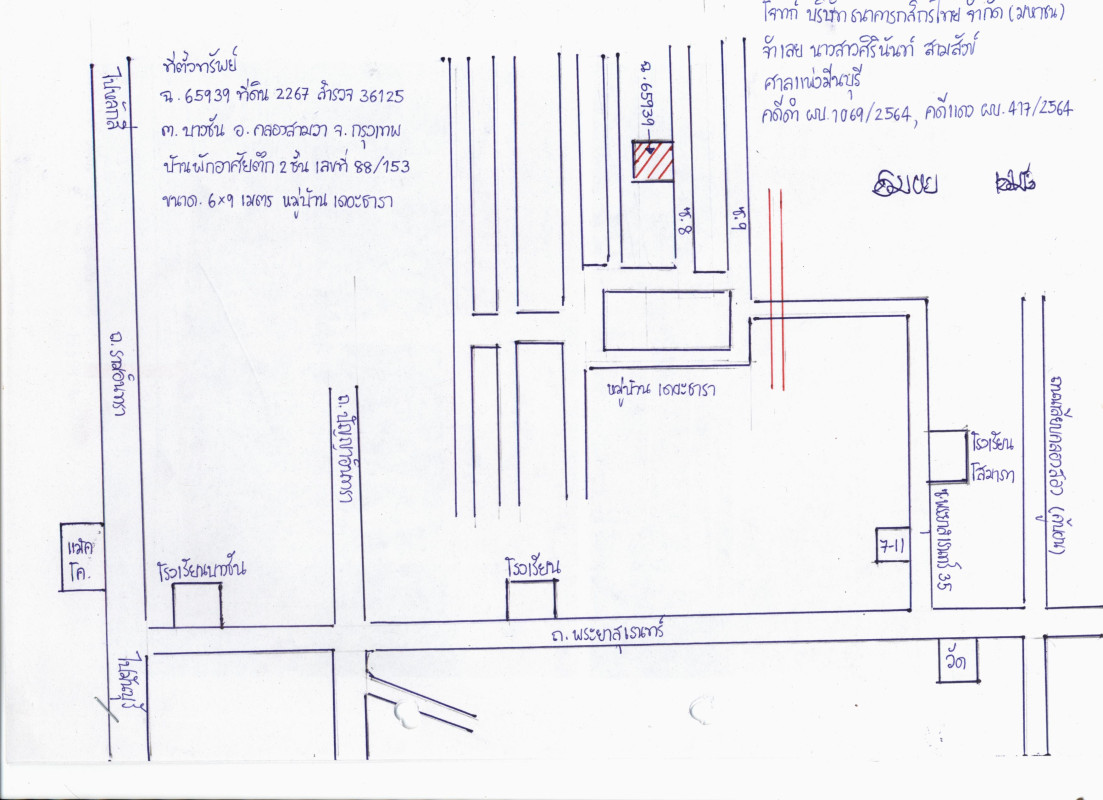 โจทก์ บริษัท ธนาคารกสิกรไทย จำกัด (มหาชน)
จำเลย นางสาวศิรินันท์ สามสังข์
ศาลแพ่งมีนบุรี
คดีดำ ผบ.1069/2564, คดีแดง ผบ.417/2564
ที่ตั้งทรัพย์
ฉ.65939 ที่ดิน 2267 สำรวจ 36125
ต. บางชัน อ. คลองสามวา จ. กรุงเทพ
บ้านพักอาศัยตึก 2 ชั้น เลขที่ 88/153
ขนาด. 6×9 เมตร หมู่บ้าน เดอะธารา
ไปหลักสี่
ฉ.65939
ซ.8
ซ.9
หมู่บ้าน เดอะธารา
ถ.รามอินทรา
ถ.ปัญญาอินทรา
โรงเรียน
โสมาภา
7-11
ซ.พระยาสุเรนทร์ 35
แม็ค
โค.
โรงเรียนบางชัน
โรงเรียน
ถ. พระยาสุเรนทร์
วัด
ไปมีนบุรี